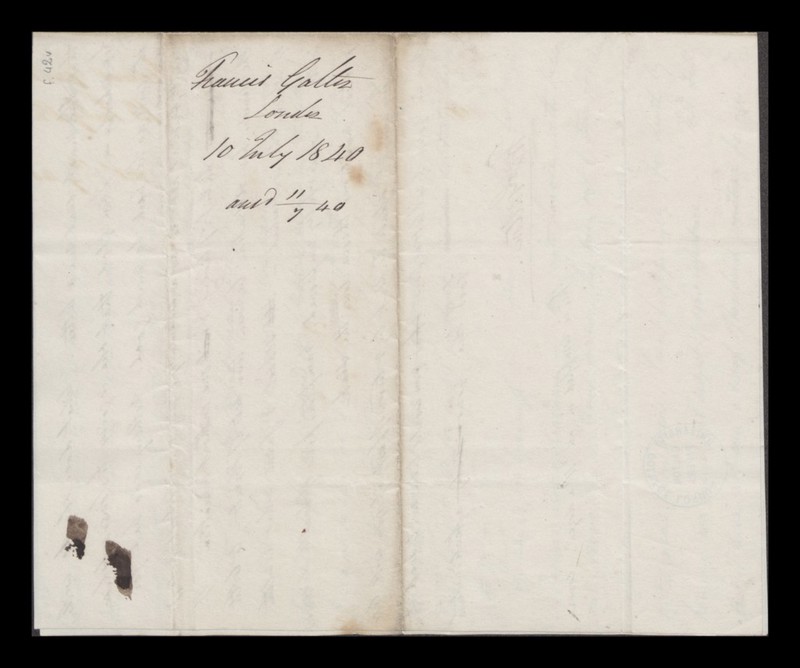 f. 42v
Francis Galton
London
10 July 1840
ansd 11/7 40